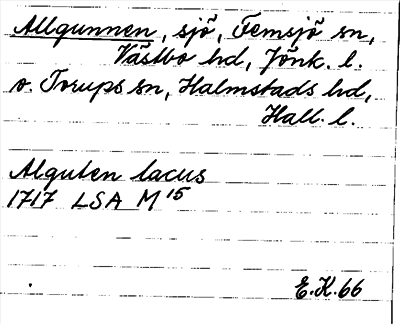 Allgunnen, sjö, Femsjö sn,
Västbo hd, Jönk. l.
o. Torups sn, Halmstads hd,
Hall. l.
Alguten lacus
1717 LSA M 15
E.K. 66